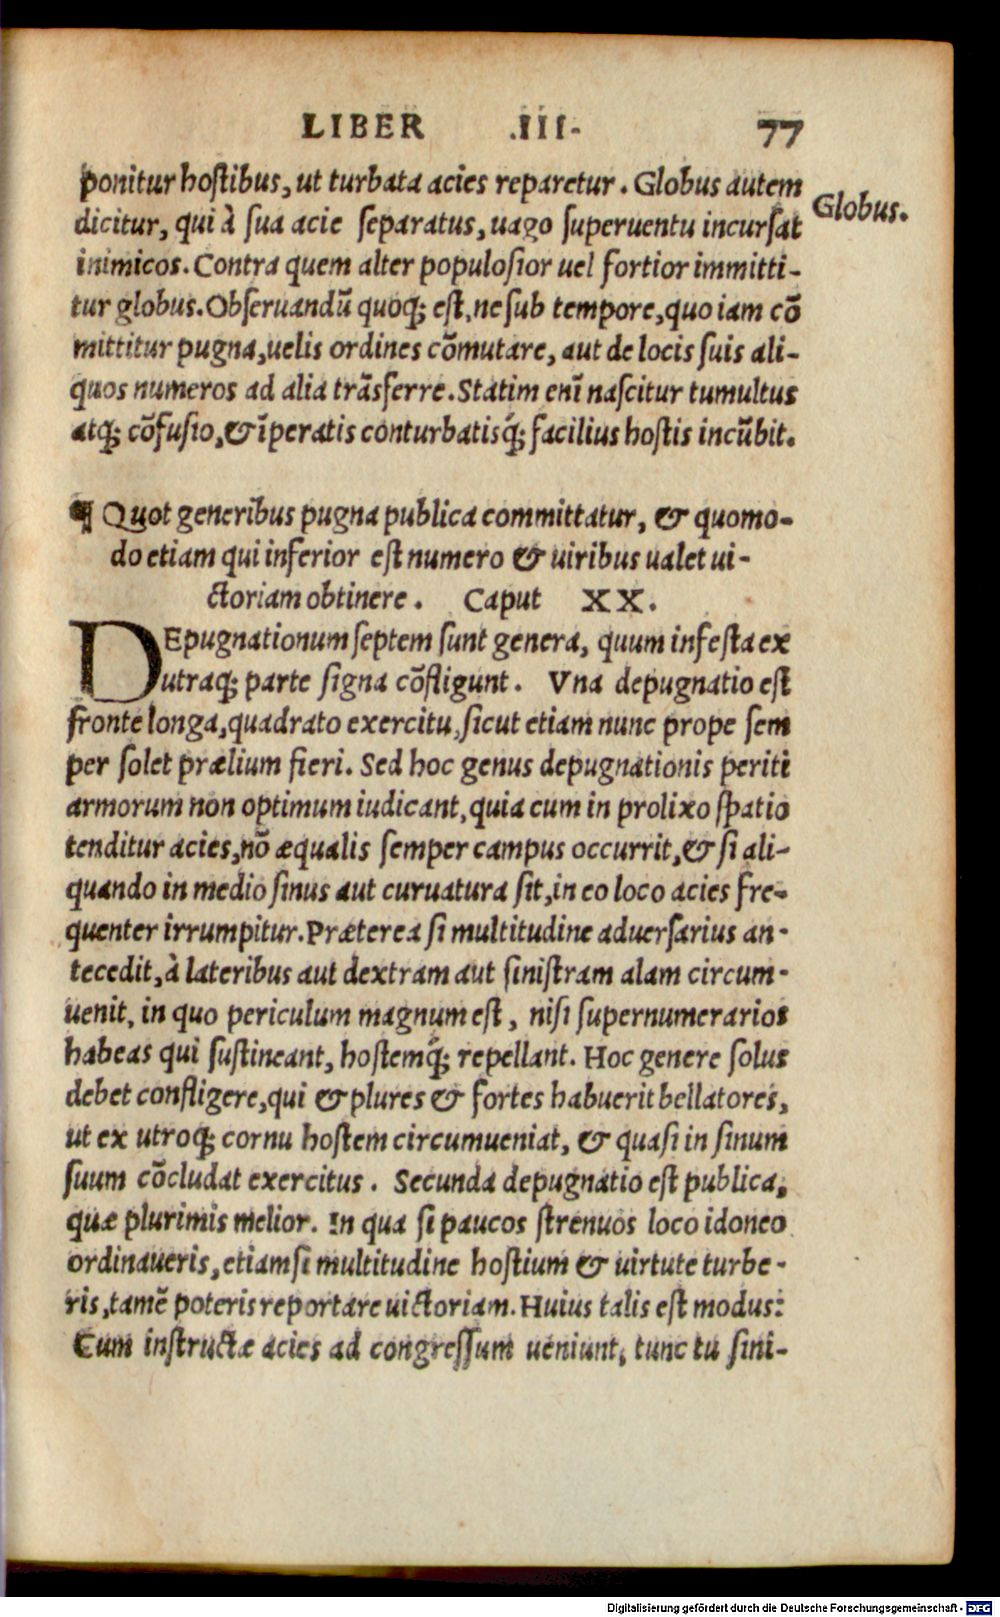 LIBER .III. 77
ponitur hostibus, ut turbata acies reparetur. Globus autem
Globus.
dicitur, qui à sua acie separatus, uago superuentu incursat
inimicos. Contra quem alter populosior uel fortior immitti-
tur globus. Obseruandũ quoq; est, ne sub tempore, quo iam cõ
mittitur pugna, uelis ordines cõmutare, aut de locis suis ali-
quos numeros ad alia trãsferre. Statim enĩ nascitur tumultus
atq; cõfusio, & ĩperatis conturbatisq́; facilius hostis incũbit.
¶ Quot generibus pugna publica committatur, & quomo-
do etiam qui inferior est numero & uiribus ualet ui-
ctoriam obtinere. Caput XX.
DEpugnationum septem sunt genera, quum infesta ex
utraq; parte signa cõfligunt. Vna depugnatio est
fronte longa, quadrato exercitu, sicut etiam nunc prope sem
per solet prælium fieri. Sed hoc genus depugnationis periti
armorum non optimum iudicant, quia cum in prolixo spatio
tenditur acies, nõ æqualis semper campus occurrit, & si ali-
quando in medio sinus aut curuatura sit, in eo loco acies fre-
quenter irrumpitur. Præterea si multitudine aduersarius an-
tecedit, à lateribus aut dextram aut sinistram alam circum-
uenit, in quo periculum magnum est, nisi supernumerarios
habeas qui sustineant, hostemq́; repellant. Hoc genere solus
debet confligere, qui & plures & fortes habuerit bellatores,
ut ex utroq; cornu hostem circumueniat, & quasi in sinum
suum cõcludat exercitus. Secunda depugnatio est publica,
quæ plurimis melior. In qua si paucos strenuos loco idoneo
ordinaueris, etiamsi multitudine hostium & uirtute turbe-
ris, tamẽ poteris reportare uictoriam. Huius talis est modus:
Cum instructæ acies ad congressum ueniunt, tunc tu sini-
Digitalisierung gefördert durch die Deutsche Forschungsgemeinschaft - DFG